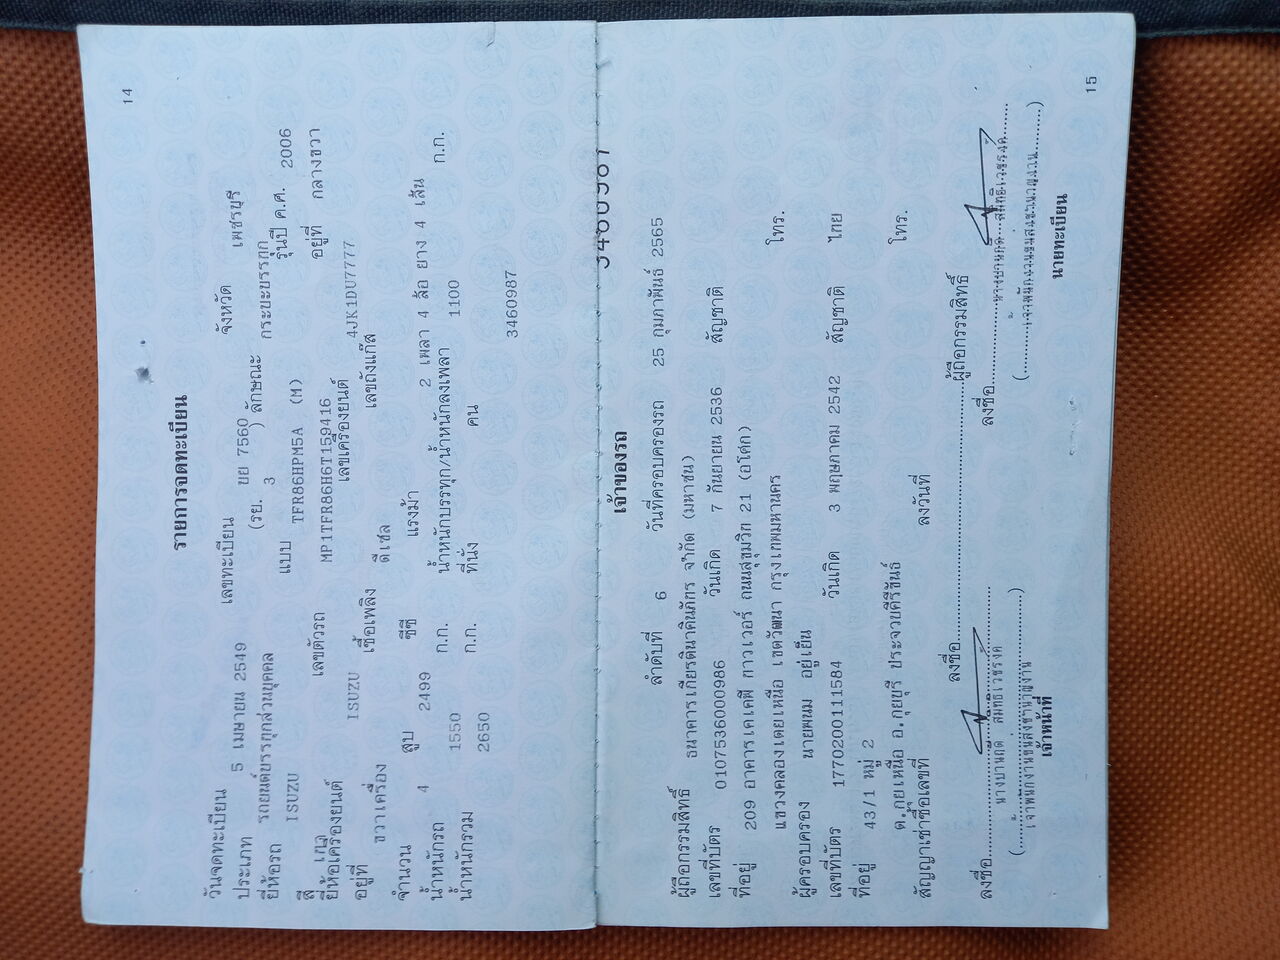 14
รายการจดทะเบียน
วันจดทะเบียน 5 เมษายน 2549 เลขทะเบียน ยย 7560 จังหวัด เพชรบุรี
ประเภท รถยนต์บรรทุกส่วนบุคคล (รย. 3 ) ลักษณะ กระบะบรรทุก
ยี่ห้อรถ ISUZU แบบ TFR86HPM5A (M) รุ่นปี ค.ศ. 2006
สี เทา เลขตัวรถ MP1TFR86H6T159416 อยู่ที่ กลางขวา
ยี่ห้อเครื่องยนต์ ISUZU เลขเครื่องยนต์ 4JK1DU7777
อยู่ที่ ขวาเครื่อง เชื้อเพลิง ดีเซล เลขถังแก๊ส
จำนวน 4 สูบ 2499 ซีซี แรงม้า 2 เพลา 4 ล้อ ยาง 4 เส้น
น้ำหนักรถ 1550 ก.ก. น้ำหนักบรรทุก/น้ำหนักลงเพลา 1100 ก.ก.
น้ำหนักรวม 2650 ก.ก. ที่นั่ง คน
3460987
3460987
เจ้าของรถ
ลำดับที่ 6 วันที่ครอบครองรถ 25 กุมภาพันธ์ 2565
ผู้ถือกรรมสิทธิ์ ธนาคารเกียรตินาคินภัทร จำกัด (มหาชน)
เลขที่บัตร 0107536000986 วันเกิด 7 กันยายน 2536 สัญชาติ
ที่อยู่ 209 อาคารเคเคพี ทาวเวอร์ ถนนสุขุมวิท 21 (อโศก)
แขวงคลองเตยเหนือ เขตวัฒนา กรุงเทพมหานคร โทร.
ผู้ครอบครอง นายพนม อยู่เย็น
เลขที่บัตร 1770200111584 วันเกิด 3 พฤษภาคม 2542 สัญชาติ ไทย
ที่อยู่ 43/1 หมู่ 2
ต.กุยเหนือ อ.กุยบุรี ประจวบคีรีขันธ์ โทร.
สัญญาเช่าซื้อเลขที่ ลงวันที่
ลงชื่อ ผู้ถือกรรมสิทธิ์
ลงชื่อ
ลงชื่อ
(เจ้าพนักงานขนส่งชำนาญงาน)
เจ้าหน้าที่
(เจ้าพนักงานขนส่งชำนาญงาน)
นายทะเบียน
15